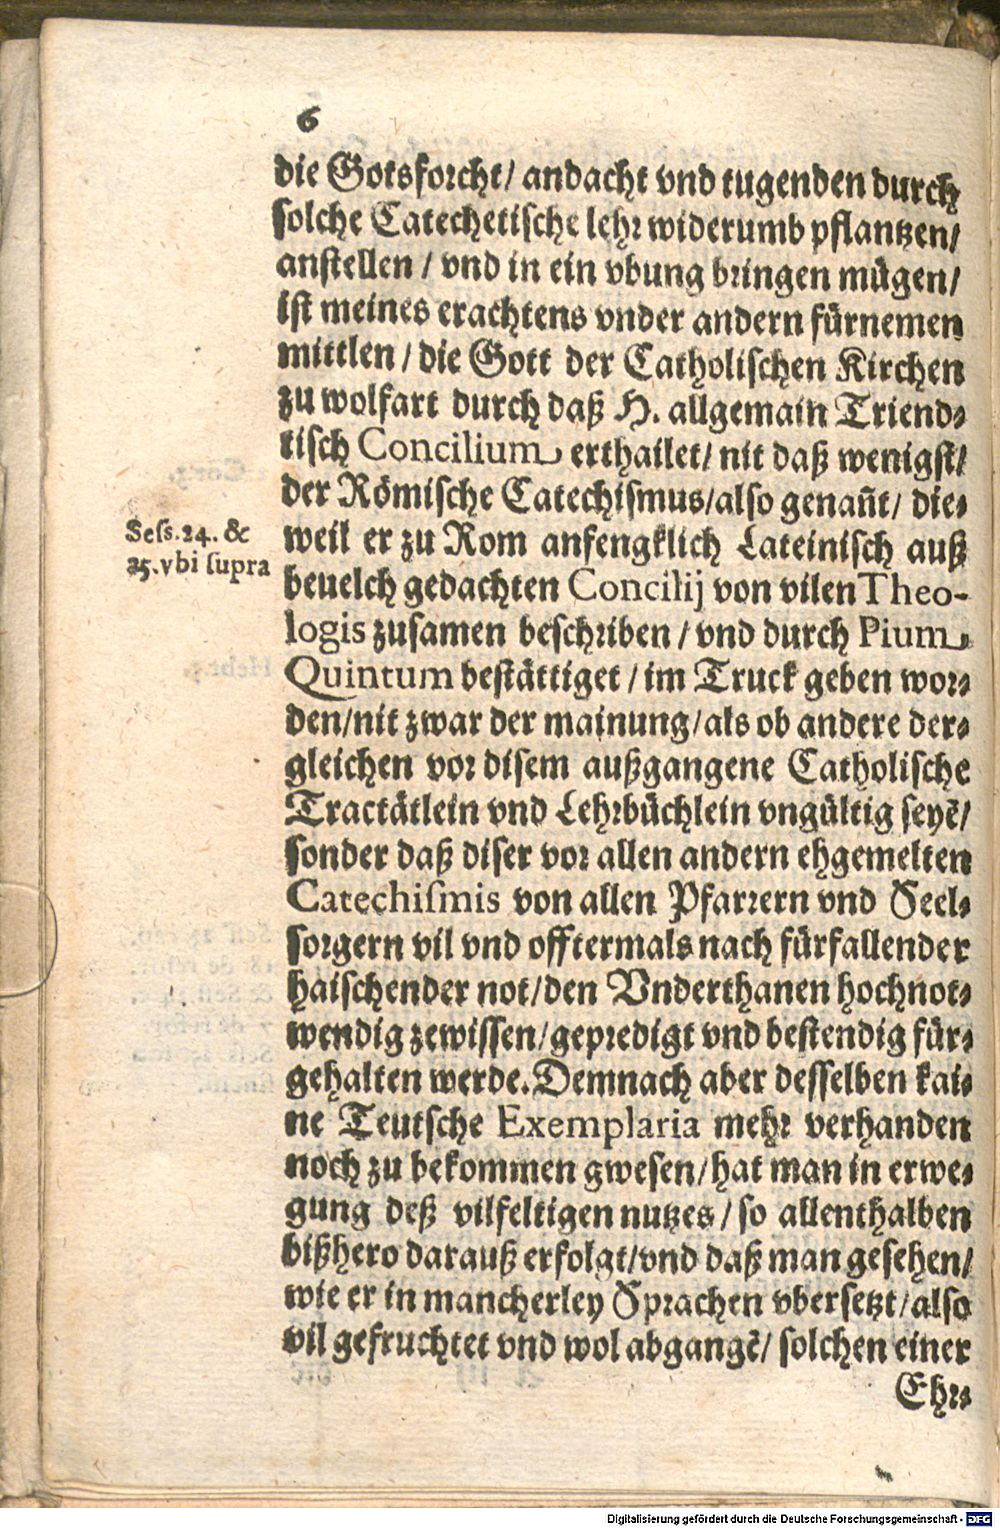 6
die Gotsforcht/ andacht vnd tugenden durch
solche Catechetische lehr widerumb pflantzen/
anstellen / vnd in ein vbung bringen mügen/
ist meines erachtens vnder andern fürnemen
mittlen / die Gott der Catholischen Kirchen
zu wolfart durch daß H. allgemain Triend⸗
tisch Concilium erthailet/ nit daß wenigst/
der Römische Catechismus/also genañt/ die⸗
Sess.24. &
25.vbi supra
weil er zu Rom anfengklich Lateinisch auß
beuelch gedachten Concilij von vilen Theo-
logis zusamen beschriben / vnd durch Pium
Quintum bestättiget / im Truck geben wor⸗
den/nit zwar der mainung/als ob andere der⸗
gleichen vor disem außgangene Catholische
Tractätlein vnd Lehrbüchlein vngültig seyẽ/
sonder daß diser vor allen andern ehgemelten
Catechismis von allen Pfarrern vnd Seel⸗
sorgern vil vnd offtermals nach fürfallender
haischender not/den Vnderthanen hochnot⸗
wendig zewissen/gepredigt vnd bestendig für⸗
gehalten werde. Demnach aber desselben kai⸗
ne Teutsche Exemplaria mehr verhanden
noch zu bekommen gwesen/hat man in erwe⸗
gung deß vilfeltigen nutzes / so allenthalben
bißhero darauß erfolgt/vnd daß man gesehen/
wie er in mancherley Sprachen vbersetzt/also
vil gefruchtet vnd wol abgangẽ/ solchen einer
Ehr⸗
Digitalisierung gefördert durch die Deutsche Forschungsgemeinschaft - DFG